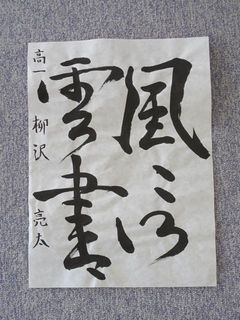 風信
雲書
高一 柳沢 亮太